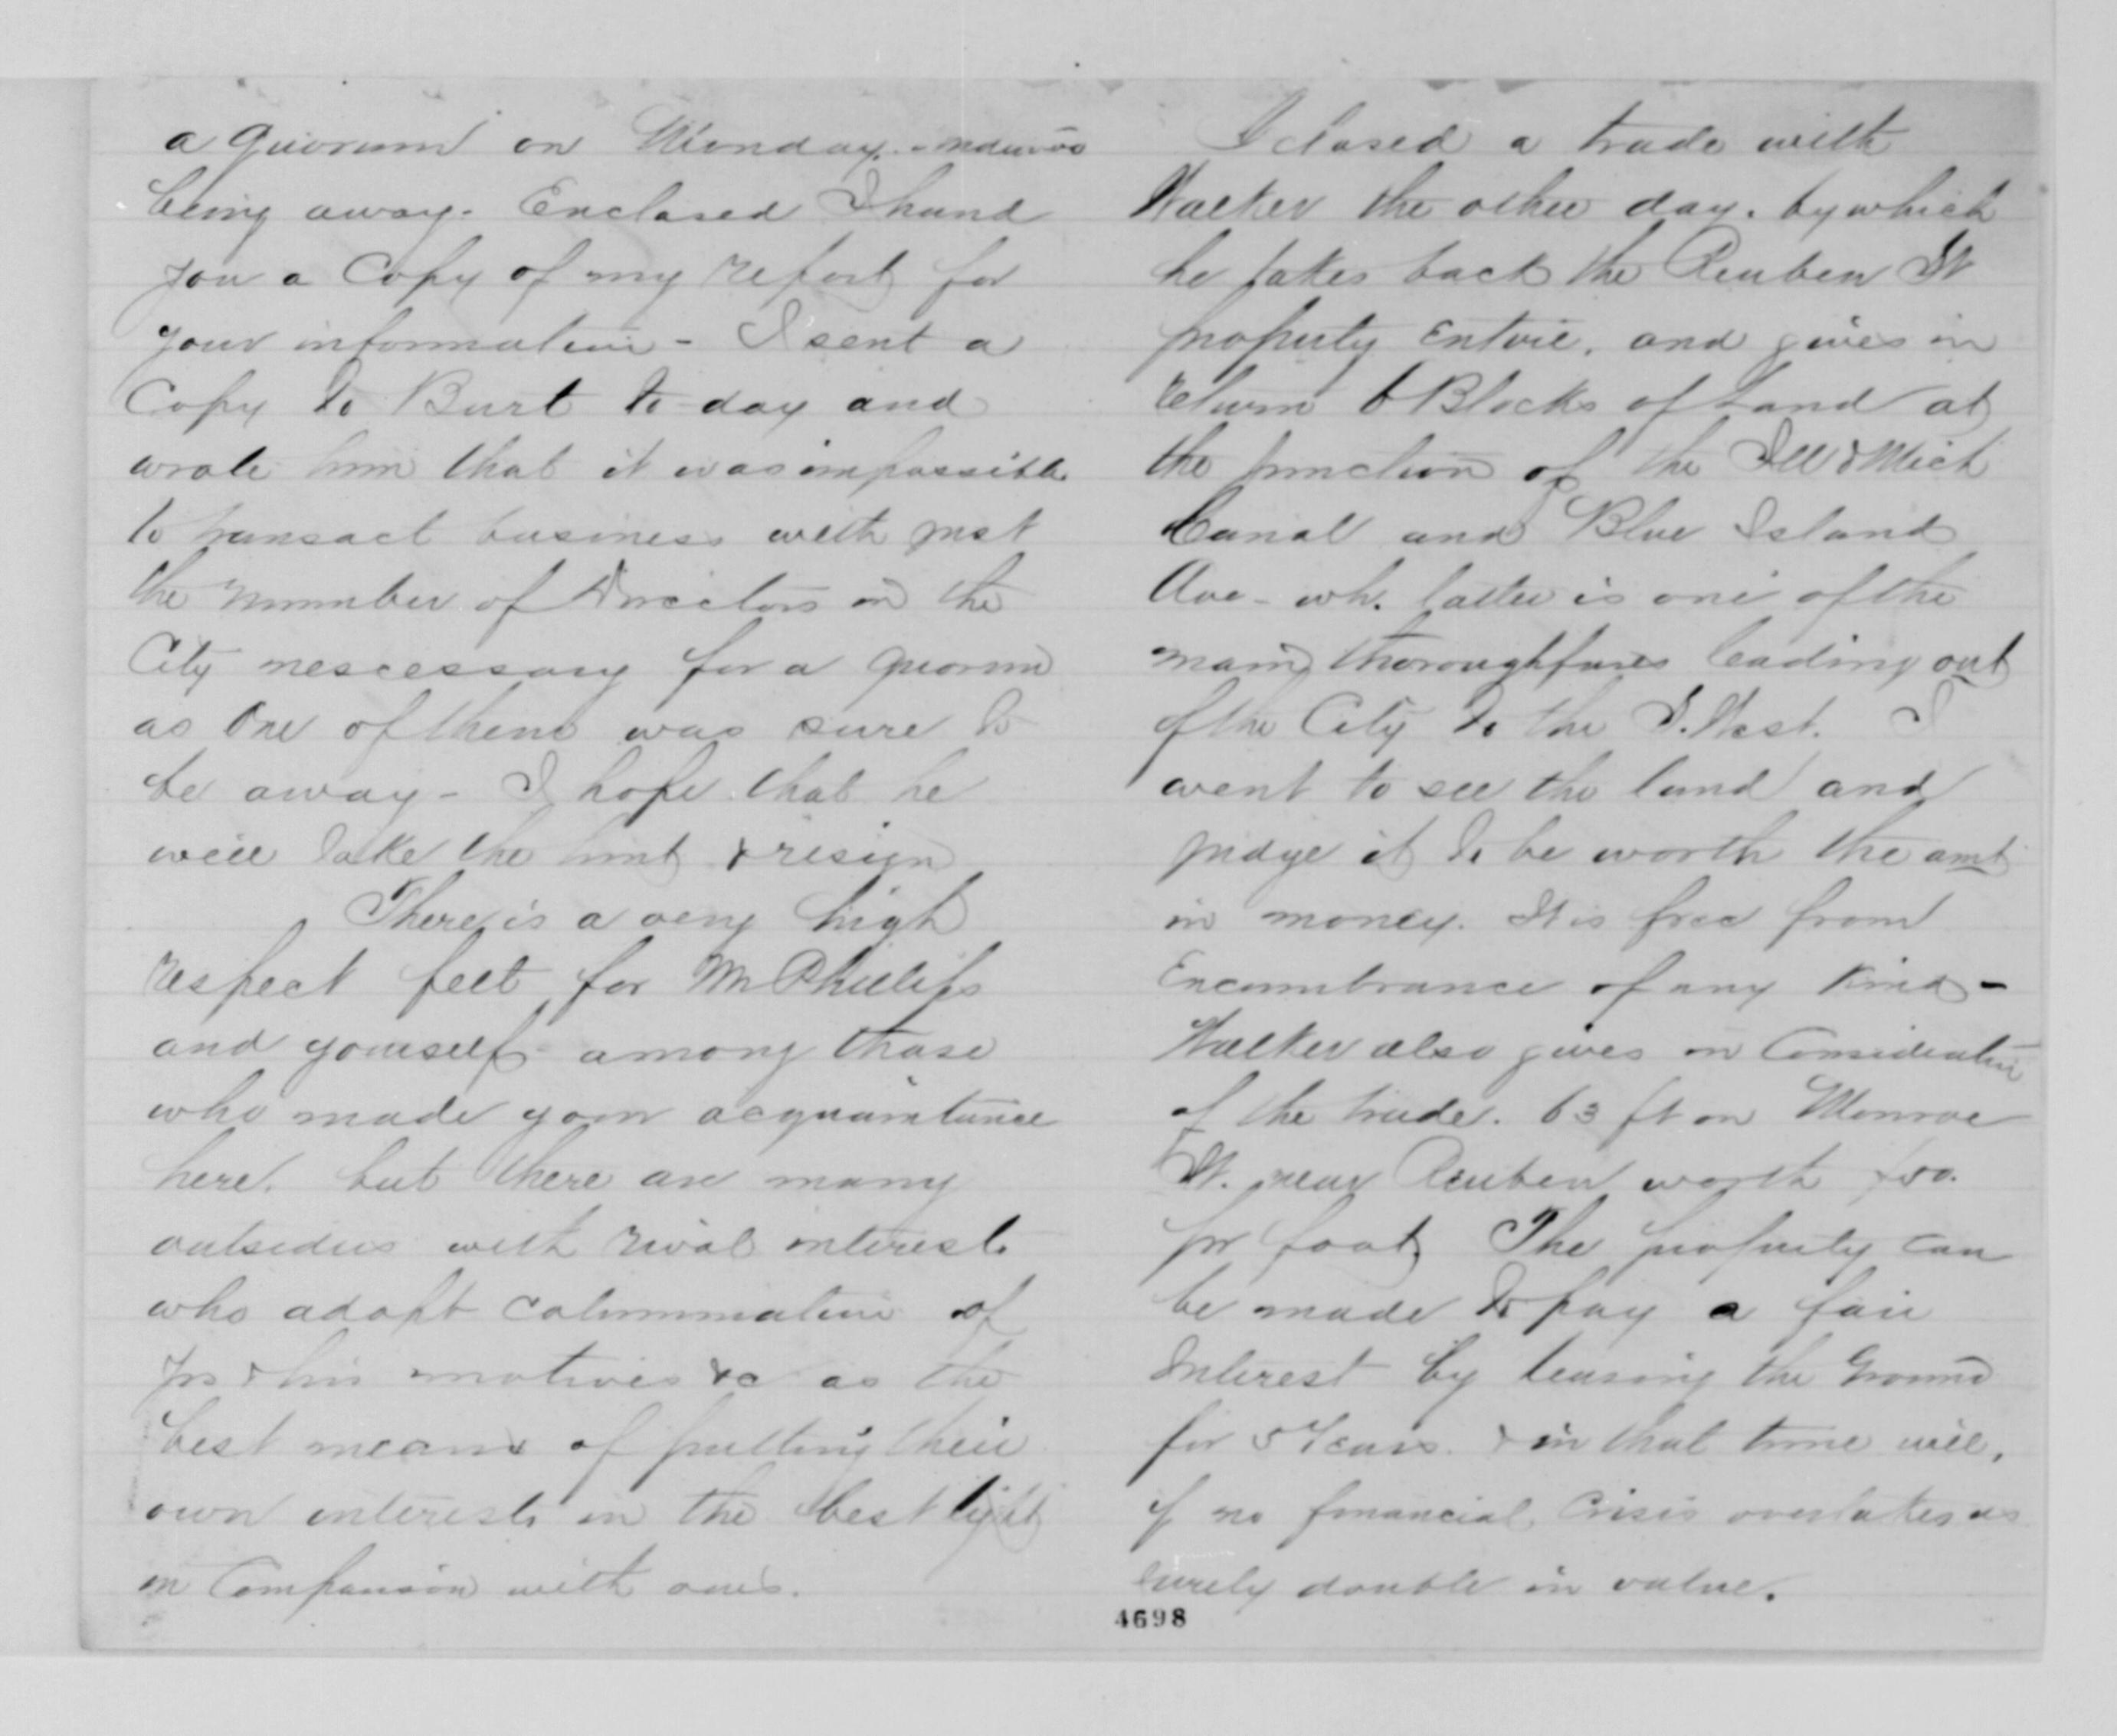 a quorum on Monday.
being away - Enclosed I hand
you a Copy of my report for
your information - I sent a
Copy to Burt to-day and
wrote him that it was impossible
to transact business with just
the number of Directors in the
City nescessary for a quorum
as One of them was sure to
be away - I hope that he
will take the hint & resign
There is a very high
respect felt for Mr Phillips
and yourself among those
who made your acquaintance
here. but there are many
outsiders with rival interests
who adopt calumniation of
yrs & his motives &c as the
best means of putting their
own interests in the best light
in Comparison with ours.
I closed a trade with
Walker the other day. by which
he takes back the Reuben St
property Entire. and gives in
return 6 Blocks of Land at
the junction of the Ill & Mich
Canal and Blue Island
Ave - wh. latter is one of the
main thoroughfares leading out
of the City to the S. West. I
went to see the land and
judge it to be worth the amt
in money. It is free from
Encumbrance of any Kind -
Walker also gives in Consideration
of the trade. 63 ft on Monroe
St. near Reuben worth
pr foot The property can
be made to pay a fair
Interest by leasing the Ground
for 5 Years. & in that time will,
if no financial Crisis overtakes us
surely double in value.
4698